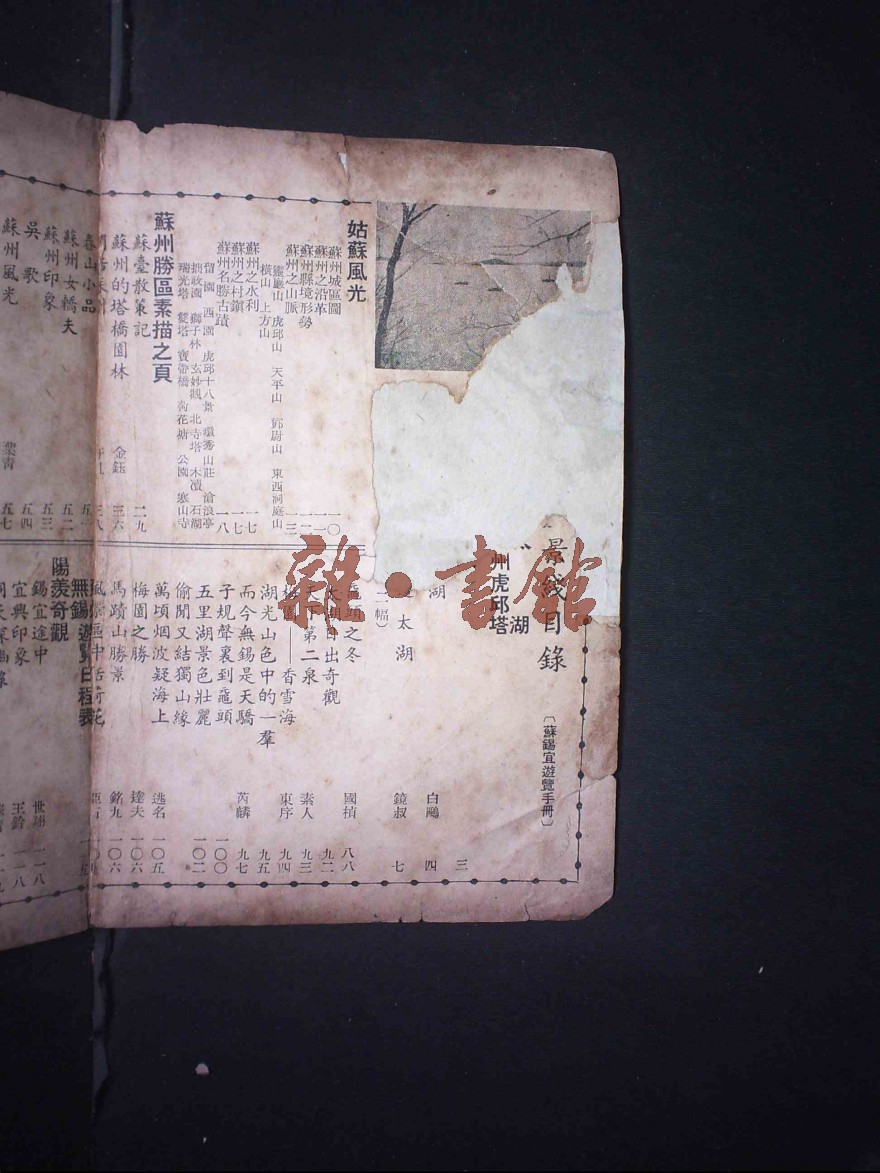 景綫目錄
〔蘇錫宜遊覽手冊〕
湖
州虎邱塔
三
湖 白鷗 四
太湖 鏡叔 七
二幅）
姑蘇風光
蘇州城區圖 一〇
蘇州之沿革 一一
蘇州縣境形勢 一二
蘇州之山脈 一三
靈巖山 虎邱山 天平山 鄧尉山 東西洞庭山
橫山 上方山
蘇州之水利 一七
蘇州之村鎮 一七
蘇州名勝古蹟 一八
留園 西園 虎邱十八景 環秀山莊 滄浪亭
拙政園 獅子林 玄妙觀 北寺塔 木瀆 石湖
瑞光塔 雙塔 寶帶橋 荷花塘 公園 寒山寺
蘇州勝區素描之頁
蘇臺散策記 二九
蘇州的塔橋園林 金鈺 三六
三八
春山小品 五一
蘇州女轎夫 五二
蘇州印象 五三
吳歌 五四
蘇州風光 葉靑 五七
黿頭之冬 國楨 八八
太湖日出奇觀 九二
天下第二泉 素人 九三
梅園——香雪海 東序 九四
湖光山色中的一羣 九五
而今無錫是天驕 芮麟 九七
子規聲裏到黿頭 一〇〇
五里湖景色壯麗 一〇二
偷閒又結獨山緣
萬頃烟波疑海上 逃名 一〇五
梅園之勝 達夫 一〇六
馬蹟山勝景 銘九 一〇六
無錫遊覽日程表
陽羨奇觀
錫宜途中 世珊 一一八
宜興印象 王鈴 一一八
雜·書館